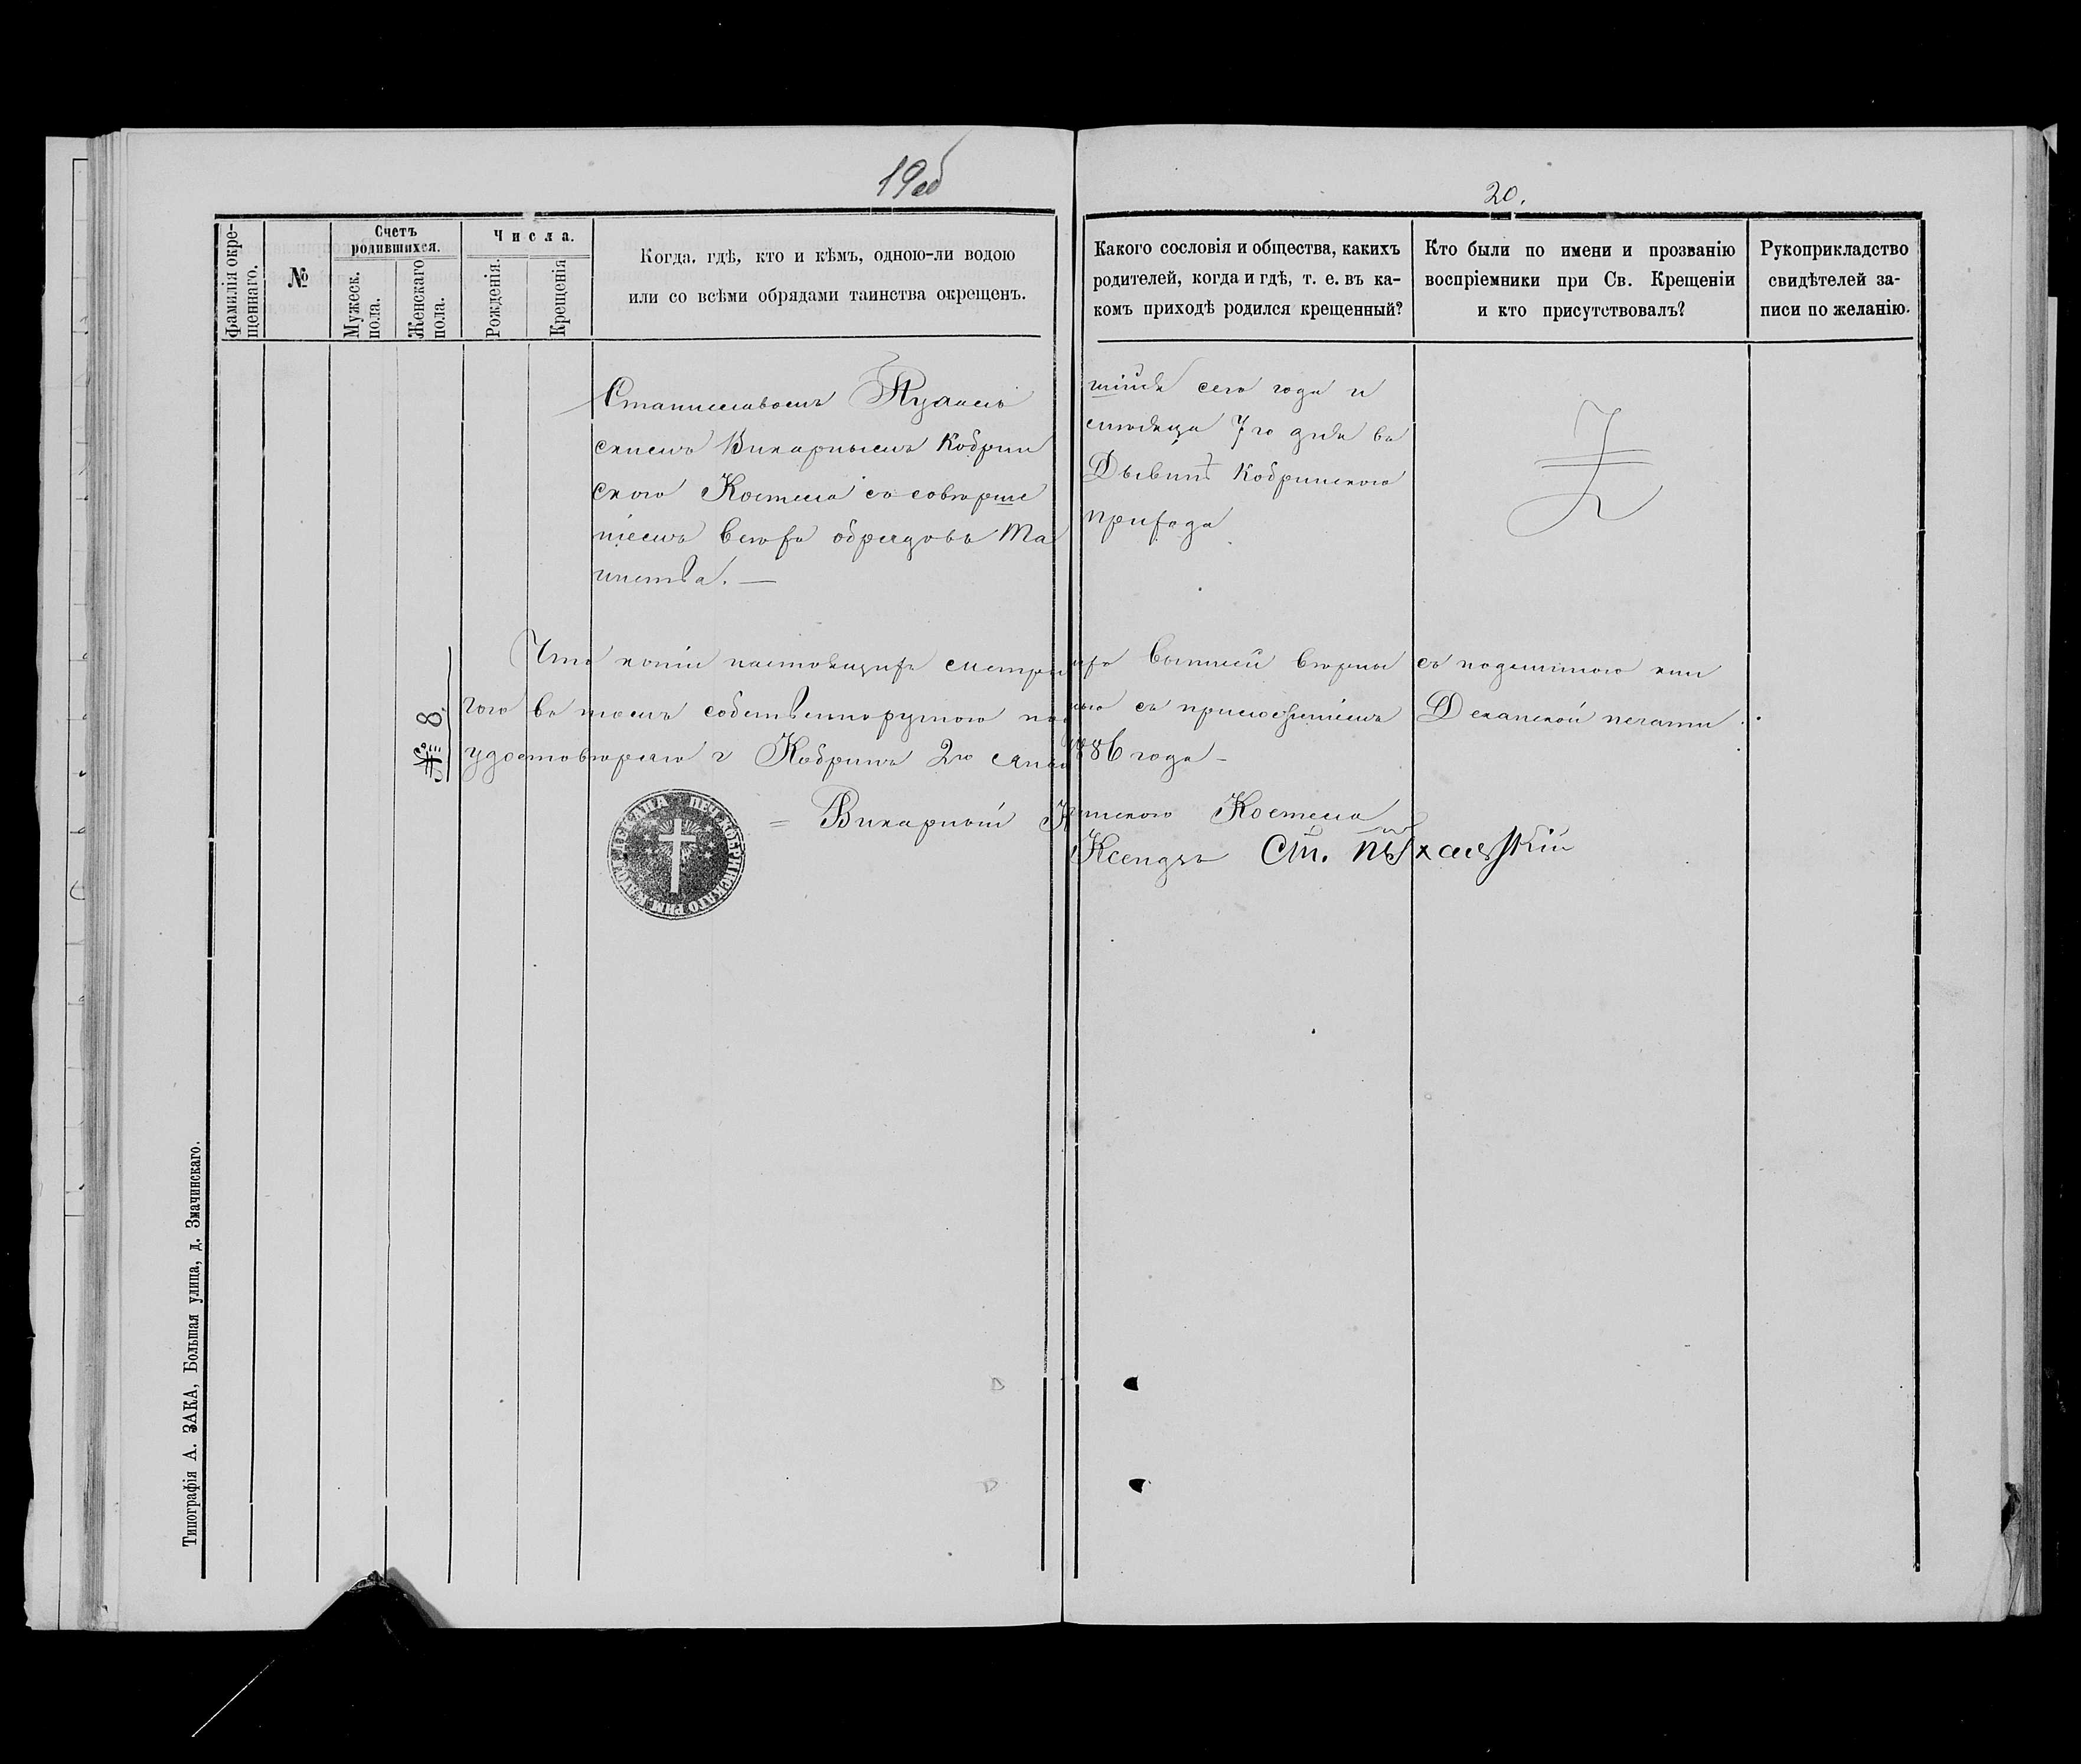 19об
20.
Фамилія окре-
щеннаго.
№
Счетъ
родившихся.
Мужеск.
пола.
Женскаго
пола.
Числа.
Рожденія.
Крещенія
Когда, гдѣ, кто и кѣмъ, одною-ли водою
или со всѣми обрядами таинства окрещенъ.
Какого сословія и общества, какихъ
родителей, когда и гдѣ, т. е. въ ка-
комъ приходѣ родился крещенный?
Кто были по имени и прозванію
воспріемники при Св. Крещеніи
и кто присутствовалъ?
Рукоприкладство
свидѣтелей за-
писи по желанію.
Станиславомъ
скимъ Викарнымъ Кобрин
скаго Костела съ соверше
ніемъ всѣхъ обрядовъ Та
инства. —
сего года и
мѣсяца 7го дня въ
Дывинѣ Кобринскаго
прихода
Что копія настоящихъ метри вѣрна съ подлинною кни
гою въ томъ собственноручною съ приложеніемъ Деканской печати
удостовѣряю г Кобринъ 2го 1886 года –
№ 8.
= Викарный Костела
Ксендзъ Ст.
ПЕЧ. КОБРИНСКАГО РИМ. КАТОЛ. ДЕКАНА
Типографія А. ЗАКА, Большая улица, д. Змачинскаго.